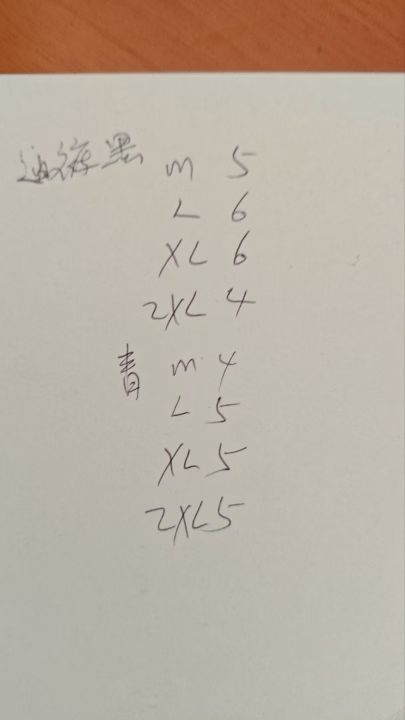 黑 M 5
L 6
XL 6
2XL 4
青 M 4
L 5
XL 5
2XL 5